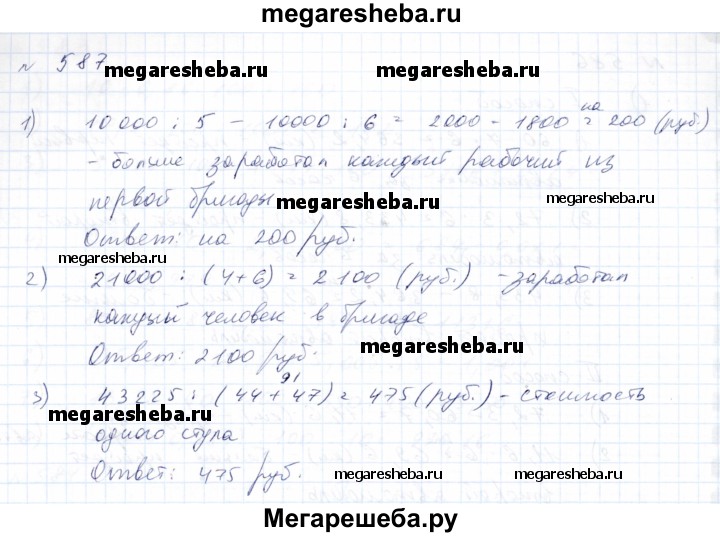 megaresheba.ru
№ 587
megaresheba.ru megaresheba.ru
1) 10000 : 5 - 10000 : 6 = 2000 - 1800 = на 200 (руб)
- больше заработал каждый рабочий из
megaresheba.ru
первой бригады
megaresheba.ru
Ответ: на 200 руб.
megaresheba.ru
2) 21000 : (4+6) = 2100 (руб.) - заработал
каждый человек в бригаде
megaresheba.ru
Ответ: 2100 руб.
91
3) 43225 : (44+47) = 475 (руб.) - стоимость
megaresheba.ru
одного стула
Ответ: 475 руб.
megaresheba.ru megaresheba.ru
Мегарешеба.ру